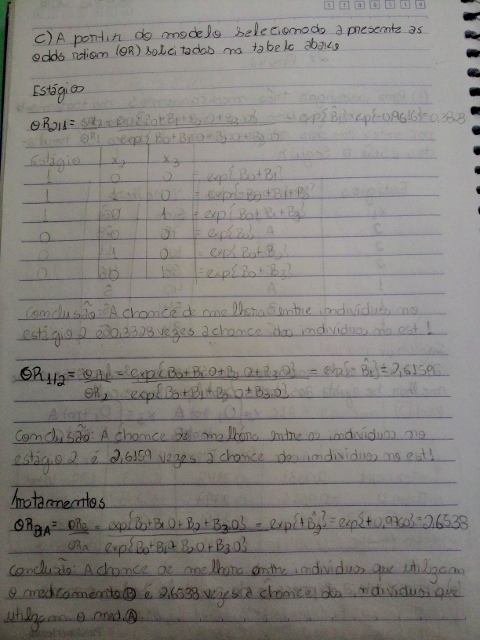 C) A partir do modelo selecionado apresente as
odds ration (OR) solicitadas na tabela abaixo
Estágios
OR2|1 =
Estágio x2 x3
1 0 0 = exp{B0+B1}
1 1 0 = exp{B0+B1+B2}
1 0 1 = exp{B0+B1+B3}
0 0 0 = exp{B0}
0 1 0 = exp{B0+B2}
0 0 1 = exp{B0+B3}
Conclusão: A chance de melhora entre indivíduos no
estágio 2 é 0,3828 vezes a chance dos indivíduos no est 1
OR1|2 = OR1 = exp{B0+B1.0+B2.0+B3.0} = exp{-B̂1} = 2,6159
OR2 exp{B0+B1+B2.0+B3.0}
Conclusão: A chance de melhora entre os indivíduos no
estágio 2 é 2,6159 vezes a chance dos indivíduos no est 1
Tratamentos
ORB|A = ORB = exp{B0+B1.0+B2+B3.0} = exp{+B̂2} = exp{+0,9760} = 2,6538
ORA exp{B0+B1+B2.0+B3.0}
Conclusão: A chance de melhora entre indivíduos que utilizam
o medicamento B é 2,6538 vezes a chance dos indivíduos que
utilizam o med. A